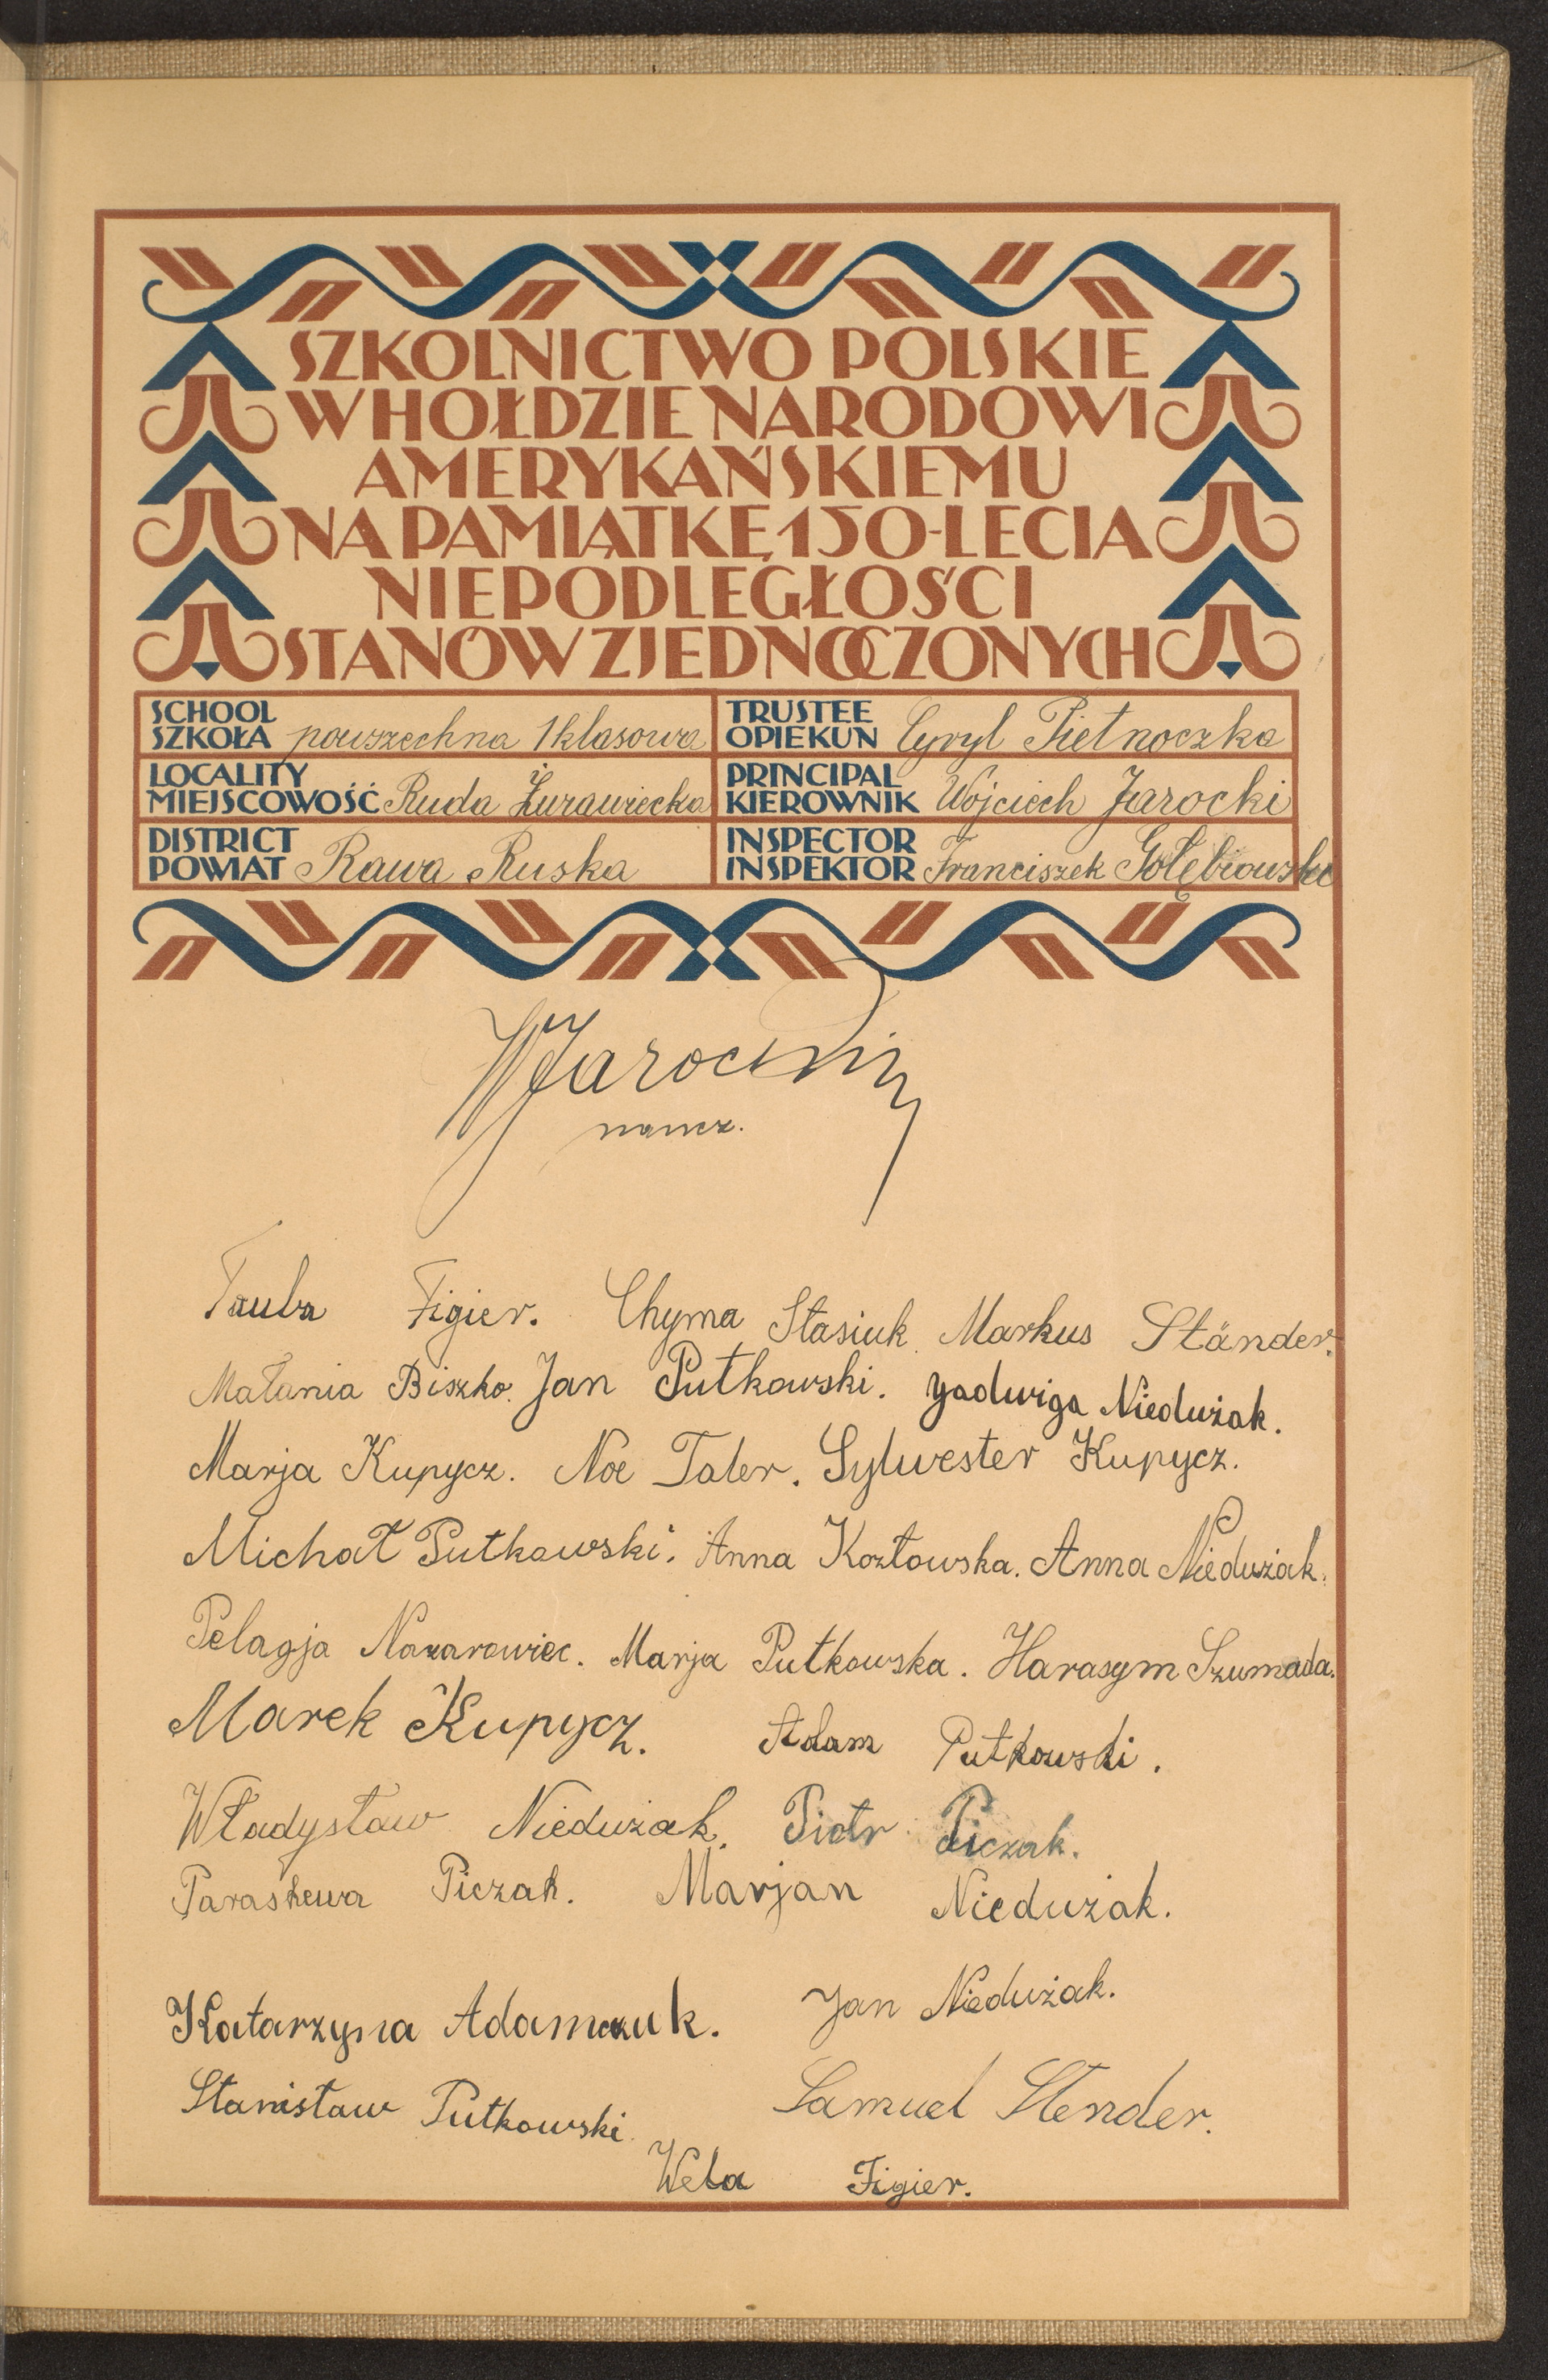 SZKOLNICTWO POLSKIE
W HOŁDZIE NARODOWI
AMERYKAŃSKIEMU
NA PAMIĄTKĘ 150-LECIA
NIEPODLEGŁOŚCI
STANÓW ZJEDNOCZONYCH
SCHOOL
SZKOŁA powszechna 1 klasowa
TRUSTEE
OPIEKUN Cyryl Pietnoczka
LOCALITY
MIEJSCOWOŚĆ Ruda Żurawiecka
PRINCIPAL
KIEROWNIK Wojciech Jarocki
DISTRICT
POWIAT Rawa Ruska
INSPECTOR
INSPEKTOR Franciszek Gołębiowski
WJarocki
naucz.
Tauba Figier. Chyma Stasiuk. Markus Ständer.
Małania Biszko. Jan Putkowski. Jadwiga Niedużak.
Marja Kupycz. Noe Taler. Sylwester Kupycz.
Michał Putkowski. Anna Kozłowska. Anna Niedużak.
Pelagja Nazarowiec. Marja Putkowska. Harasym Szumada.
Marek Kupycz. Adam Putkowski.
Władysław Niedużak. Piotr Piczak.
Paraskewa Piczak. Marjan Niedużak.
Katarzyna Adamczuk. Jan Niedużak.
Stanisław Putkowski. Samuel Stender.
Wela Figier.